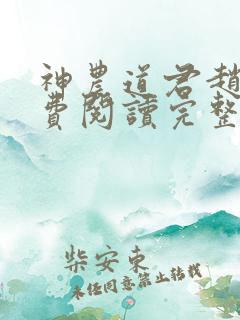 神農道君趙
費閱讀完整
柴安東
未經同意禁止轉載